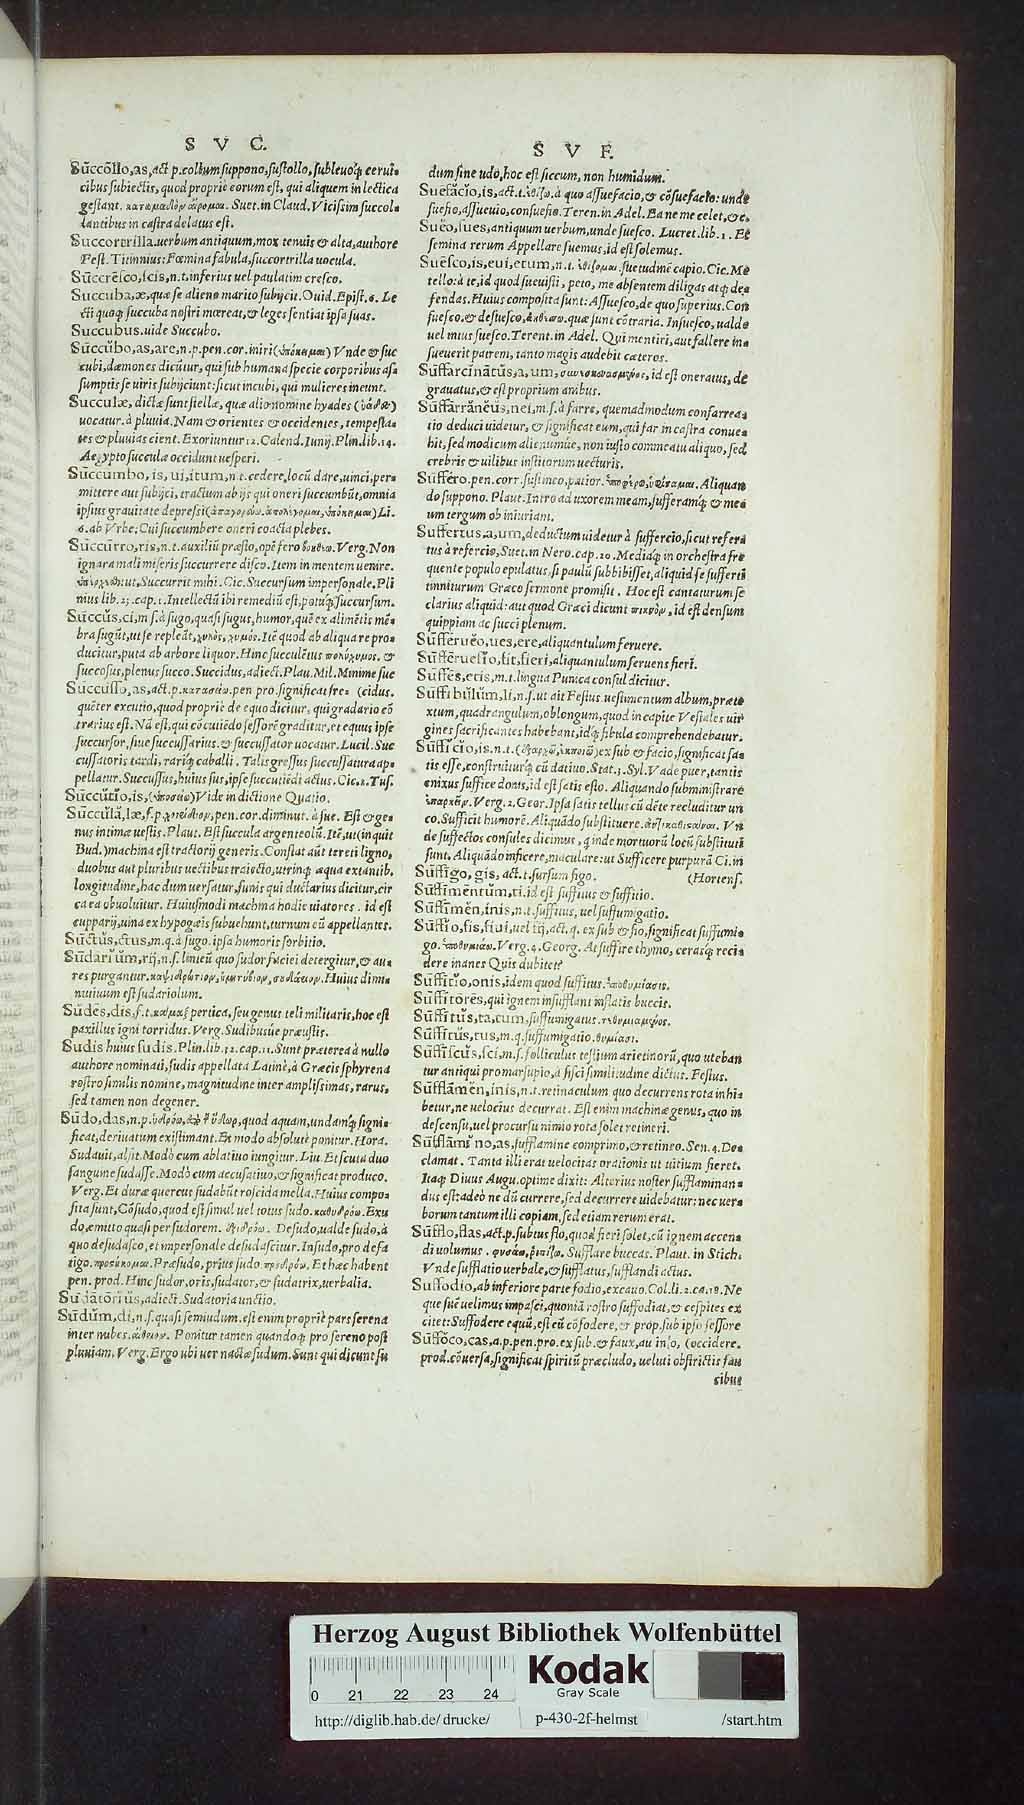 S V C.
Succollo, as, act p. collum suppono, sustollo, subleuoq́; ceruicibus
cibus subiectis, quod propriè eorum est, qui aliquem in lectica
gestant. Suet. in Claud. Vicissim succol-
lantibus in castra delatus est.
Succortrilla. uerbum antiquum, mox tenuis & alta, authore
Fest. Titinnius: Fœmina fabula, succortrilla uocula.
Succresco, scis, n.t. inferius uel paulatim cresco.
Succuba, æ, quæ se alieno marito subijcit. Ouid. Epist. 6. Le
cti quoq́; succuba nostri mœreat, & leges sentiat ipsa suas.
Succubus. uide Succubo.
Succubo, as, are, n.p. pen. cor. iniri (ὑπόκειμαι) Vnde & suc
cubi, dæmones dicūtur, qui sub humana specie corporibus as-
sumptis se uiris subijciunt: sicut incubi, qui mulieres ineunt.
Succulæ, dictæ sunt stellæ, quæ alio nomine hyades (ὑάδες)
uocatur. à pluuia. Nam & orientes & occidentes, tempesta-
tes & pluuias cient. Exoriuntur 12. Calend. Iunij. Plin. lib. 14.
Aegypto succulæ occidunt uesperi.
Succumbo, is, ui, itum, n t. cedere, locū dare, uinci, per-
mittere aut subijci, tractum ab ijs qui oneri succumbūt, omnia
ipsius grauitate depressi (ἀπαγορεύω. ὑπόκειμαι) Li.
6. ab Vrbe: Cui succumbere oneri coacta plebes.
Succurro, ris, n.t. auxiliū præsto, opē fero βοηθέω. Verg. Non
ignara mali miseris succurrere disco. Item in mentem uenire.
ut, Succurrit mihi. Cic. Succursum impersonale. Pli
nius lib. 23. cap. 1. Intellectū ibi remediū est, potiusq́; succursum.
Succus, ci, m s. à sugo, quasi sugus, humor, quē ex alimētis mē-
bra sugūt, ut se repleāt, χυλὸς, χυμός. Itē quod ab aliqua re pro-
ducitur, puta ab arbore liquor. Hinc succulētus πολύχυμος. &
succosus, plenus succo. Succidus, adiect. Plau. Mil. Minime suc
Succusso, as, act. p. pen pro. significat fre- (cidus.
quēter excutio, quod propriè de equo dicitur, qui gradario cō
trarius est. Nā est, qui cōcutiēdo sessorē graditur, et equus ipse
succursor, siue succussarius. & succussator uocatur. Lucil. Suc
cussatoris tardi, rariq́; caballi. Talis gressus succussatura ap-
pellatur. Succussus, huius sus, ipse succutiēdi actus. Cic. 2. Tus.
Succutio, is, Vide in dictione Quatio.
Succula, læ, f. p. χοιρίδιον, pen. cor. diminut. à sue. Est & ge-
nus intimæ uestis. Plaut. Est succula argenteolū. Itē, ut (inquit
Bud.) machina est tractorij generis. Constat aūt tereti ligno,
duobus aut pluribus uectibus traiecto, utrinq́; æqua extantib.
longitudine, hac dum uersatur, funis qui ductarius dicitur, cir
ca ea obuoluitur. Huiusmodi machina hodie uiatores. id est
cupparij, uina ex hypogæis subuehunt, turnum eū appellantes.
Suctus, ctus, m. q. à sugo. ipsa humoris sorbitio.
Sudarium, rij, n.s. linteū quo sudor faciei detergitur, & au-
res purgantur. Huius dimi-
nuiuum est sudariolum.
Sudes, dis, f. t. pertica, seu genus teli militaris, hoc est
paxillus igni torridus. Verg. Sudibusùe præustis.
Sudis huius sudis. Plin. lib. 32. cap. 11. Sunt præterea à nullo
authore nominati, sudis appellata Latinè, à Græcis sphyrena
rostro similis nomine, magnitudine inter amplissimas, rarus,
sed tamen non degener.
Sudo, das, n.p. ὑδρόω, quod aquam, undamq́; signi-
ficat, deriuatum existimant. Et modo absolutè ponitur. Hora.
Sudauit, alsit. Modò cum ablatiuo iungitur. Liu. Et scuta duo
sanguine sudasse. Modò cum accusatiuo, & significat produco.
Verg. Et duræ quercus sudabūt roscida mella. Huius compo-
sita sunt, Cōsudo, quod est simul uel totus sudo. Exu
do, emitto quasi per sudorem. Desudo, ualde sudo. à
quo desudasco, et impersonale desudascitur. Insudo, pro defa
tigo. Præsudo, prius sudo. Et hæc habent
pen. prod. Hinc sudor, oris, sudator, & sudatrix, uerbalia.
Sudatorius, adiect. Sudatoria unctio.
Sudum, di, n. s. quasi semiudum. est enim propriè pars serena
inter nubes. Ponitur tamen quandoq́; pro sereno post
pluuiam. Verg. Ergo ubi uer nactæ sudum. Sunt qui dicunt su
S V F.
dum sine udo, hoc est siccum, non humidum.
Suefacio, is, act. t. ἐθίζω. à quo assuefacio, & cōsuefacio: unde
suefio, assueuio, consuefio. Teren. in Adel. Ea ne me celet, &c.
Sueo, sues, antiquum uerbum, unde suesco. Lucret. lib. 1. Et
semina rerum Appellare suemus, id est solemus.
Suesco, is, eui, etum, n.t. ἐθίζομαι. suetudinē capio. Cic. Me
tello: à te, id quod sueuisti, peto, me absentem diligas atq́; de-
fendas. Huius composita sunt: Assuesco, de quo superius. Con
suesco. & desuesco, quæ sunt cōtraria. Insuesco, ualde
uel intus suesco. Terent. in Adel. Qui mentiri, aut fallere in-
sueuerit patrem, tanto magis audebit cæteros.
Suffarcinatus, a, um, id est oneratus, de
grauatus, & est proprium anibus.
Suffarraneus, nei, m. s. à farre, quemadmodum confarrea-
tio deduci uidetur, & significat eum, qui far in castra conue-
hit, sed modicum alienumùe, non iusto commeatu aliquo, sed
crebris & uilibus institorum uecturis.
Suffero. pen. corr. sustineo, patior. Aliquan
do suppono. Plaut. Intro ad uxorem meam, sufferamq́; & me-
um tergum ob iniuriam.
Suffertus, a, um, deductum uidetur à suffercio, sicut refer-
tus à refercio, Suet. in Nero. cap. 20. Mediaq́; in orchestra fre
quente populo epulatus, si paulū subbibisset, aliquid se sufferti
tinniturum Græco sermone promisit. Hoc est cantaturum se
clarius aliquid: aut quod Græci dicunt πυκνὸν, id est densum
quippiam ac succi plenum.
Sufferueo, ues, ere, aliquantulum feruere.
Sufferuefio, fit, fieri, aliquantulum feruens fieri.
Suffes, etis, m.t. lingua Punica consul dicitur.
Suffibulum, li, n.s. ut ait Festus uestimentum album, præte
xtum, quadrangulum, oblongum, quod in capite Vestales uir
gines sacrificantes habebant, idq́; fibula comprehendebatur.
Sufficio, is, n.t. ex sub & facio, significat sa-
tis esse, construiturq́; cū datiuo. Stat. 1. Syl. Vade puer, tantis
enixus suffice donis, id est satis esto. Aliquando subministrare
Verg. 2. Geor. Ipsa satis tellus cū dēte recluditur un
co. Sufficit humorē. Aliquādo substituere. Vn
de suffectos consules dicimus, q́ inde mortuorū locū substituti
sunt. Aliquādo inficere, maculare: ut Sufficere purpurā Ci. in
Suffigo, gis, act. t. sursum figo. (Hortens.
Suffimentum, ti. id est suffitus & suffitio.
Suffimen, inis, n.t. suffitus, uel suffumigatio.
Suffio, fis, fiui, uel tij, act. q. ex sub & fio, significat suffumi-
go. ὑποθυμιάω. Verg. 4. Georg. At suffire thymo, cerasq́; reci-
dere inanes Quis dubitet?
Suffitio, onis, idem quod suffitus.
Suffitores, qui ignem insufflant inflatis buccis.
Suffitus, ta, tum, suffumigatus.
Suffitus, tus, m. q. suffumigatio.
Suffiscus, sci, m. s. folliculus testium arietinorū, quo uteban
tur antiqui pro marsupio, à fisci similitudine dictus. Festus.
Sufflamen, inis, n.t. retinaculum quo decurrens rota inhi-
betur, ne uelocius decurrat. Est enim machinæ genus, quo in
descensu, uel procursu nimio rota solet retineri.
Sufflamino, as, sufflamine comprimo, & retineo. Sen. 4. De-
clamat. Tanta illi erat uelocitas orationis ut uitium fieret.
Itaq́; Diuus Augu. optime dixit: Alterius noster sufflaminan-
dus est: adeò ne dū currere, sed decurrere uidebatur: nec uer-
borum tantum illi copiam, sed etiam rerum erat.
Sufflo, flas, act. p. subtus flo, quod fieri solet, cū ignem accen-
di uolumus. Sufflare buccas. Plaut. in Stich.
Vnde sufflatio uerbale, & sufflatus, sufflandi actus.
Suffodio, ab inferiore parte fodio, excauo. Col. li. 2. ca. 18. Ne
que suē uelimus impasci, quoniā rostro suffodiat, & cespites ex
citet: Suffodere equū, est eū cōfodere, & prop. sub ipso sessore
Suffoco, cas, a. p. pen. pro. ex sub. & faux, au in o, (occidere.
prod. cōuersa, significat spiritū præcludo, ueluti obstrictis fau
cibus
Herzog August Bibliothek Wolfenbüttel
Kodak
Gray Scale
0 21 22 23 24
http://diglib.hab.de/drucke/ p-430-2f-helmst /start.htm